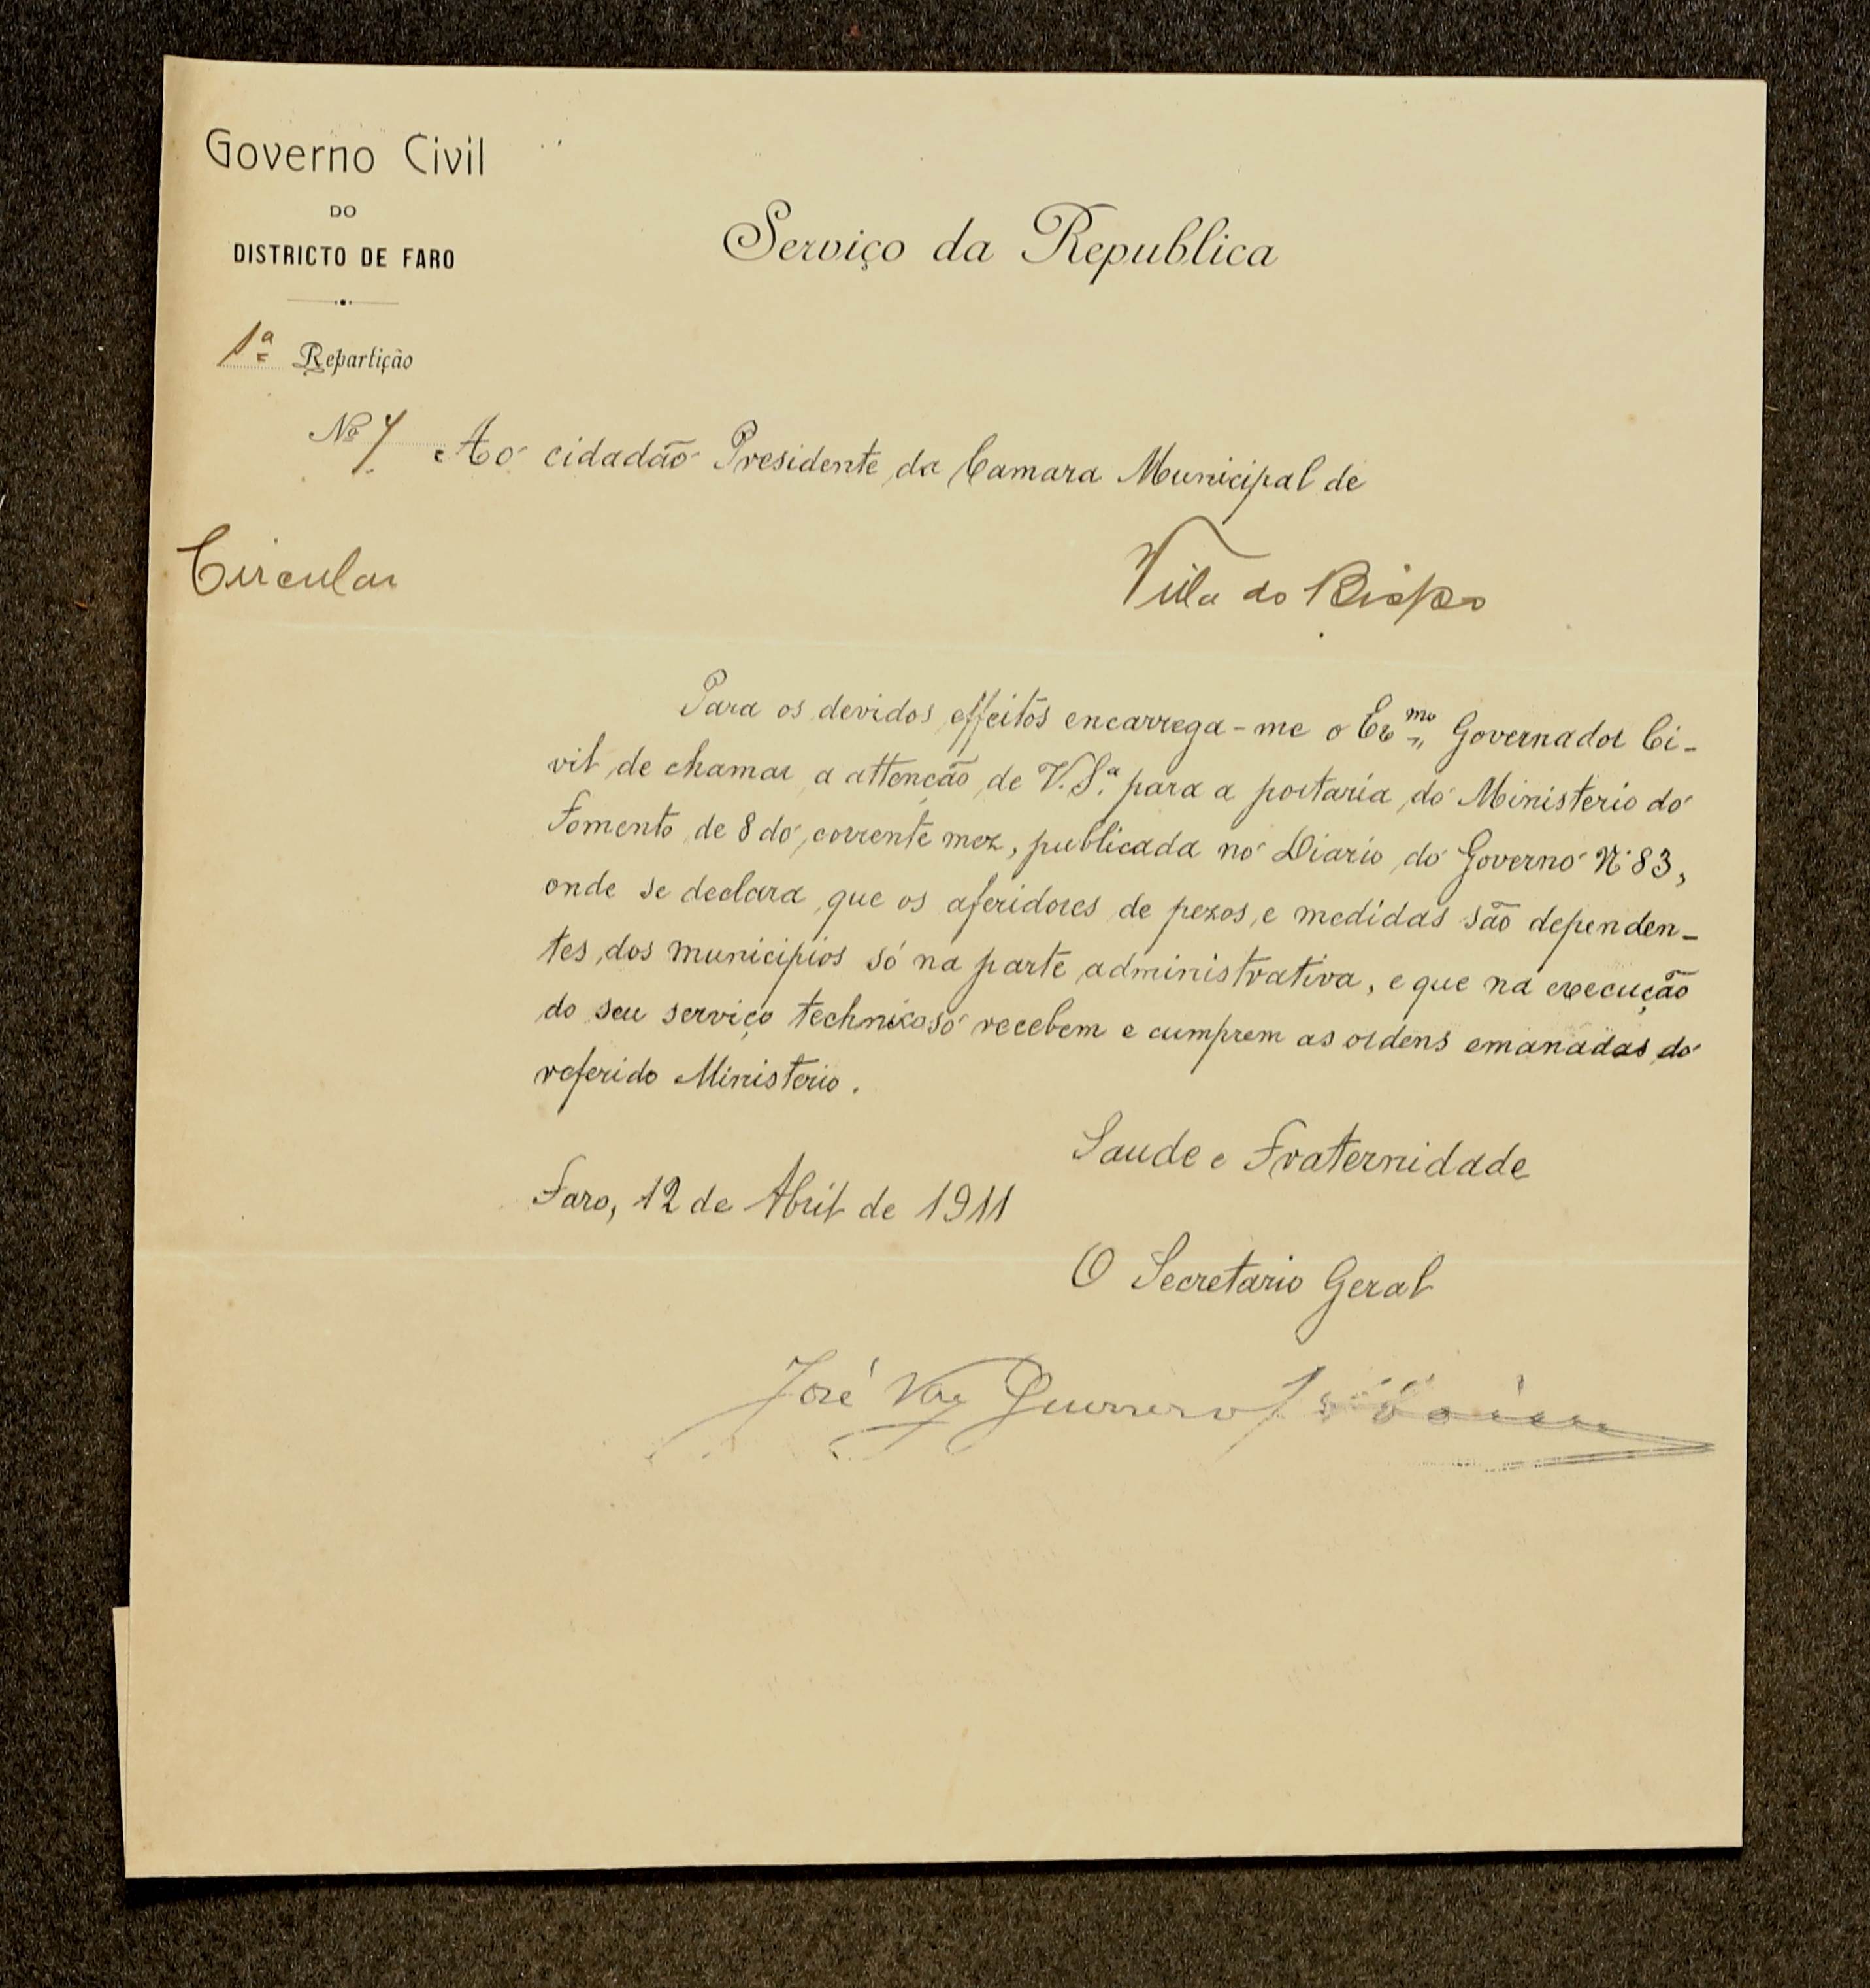 Governo Civil
DO
DISTRICTO DE FARO
Serviço da Republica
1ª Repartição
Nº 7 Ao cidadão Presidente da Camara Municipal de
Circular
Villa do Bispo
Para os devidos effeitos encarrega-me o Exmo Governador Ci-
vil de chamar a attenção de V. S.ª para a portaria do Ministerio do
Fomento de 8 do corrente mez, publicada no Diario do Governo N.º 83,
onde se declara que os aferidores de pezos e medidas são dependen-
tes dos municipios só na parte administrativa, e que na execução
do seu serviço technico só recebem e cumprem as ordens emanadas do
referido Ministerio.
Saude e Fraternidade
Faro, 12 de Abril de 1911
O Secretario Geral
José Vaz Guerreiro